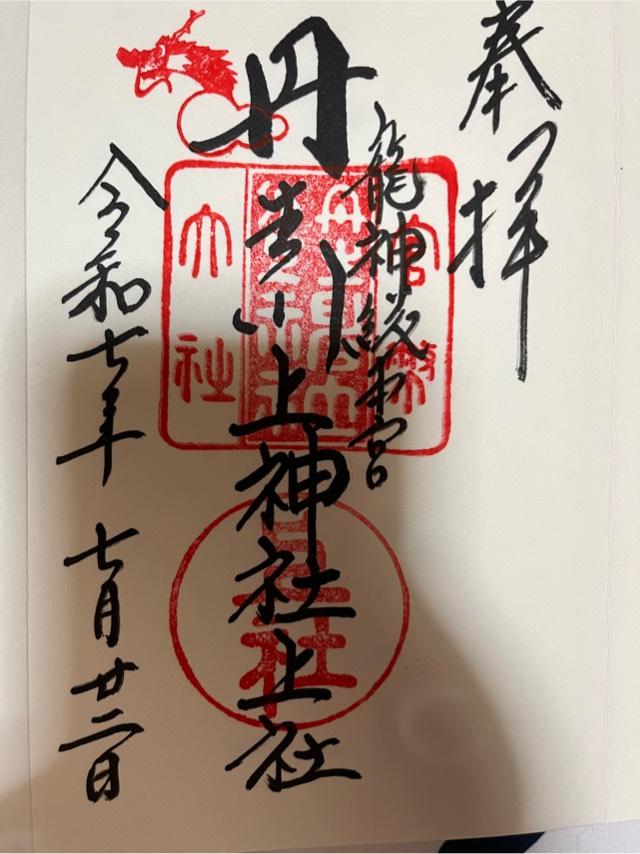 奉拝
官幣大社
龍神総本宮
丹生川上神社上社
令和七年 七月廿二日